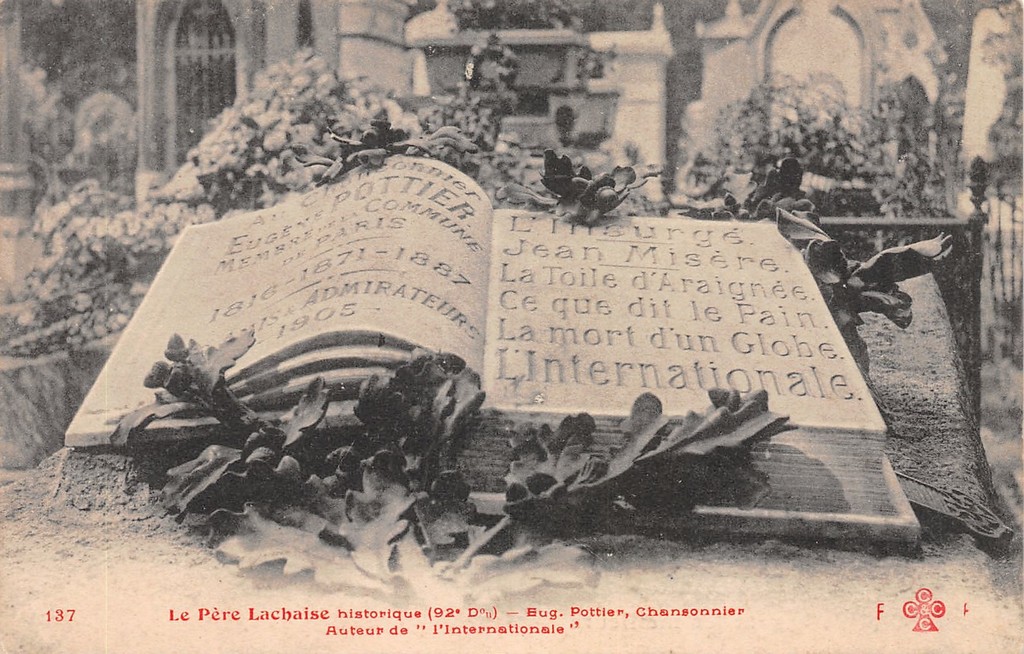 Au Chansonnier
POTTIER
EUGÈNE
MEMBRE DE LA COMMUNE
DE PARIS
1816-1871-1887
AMIS & ADMIRATEURS
1905
L'Insurgé.
Jean Misère.
La Toile d'Araignée.
Ce que dit le Pain.
La mort d'un Globe.
L'Internationale.
137
Le Père Lachaise historique (92e Don) — Eug. Pottier, Chansonnier
Auteur de " l'Internationale "
F
C C C C